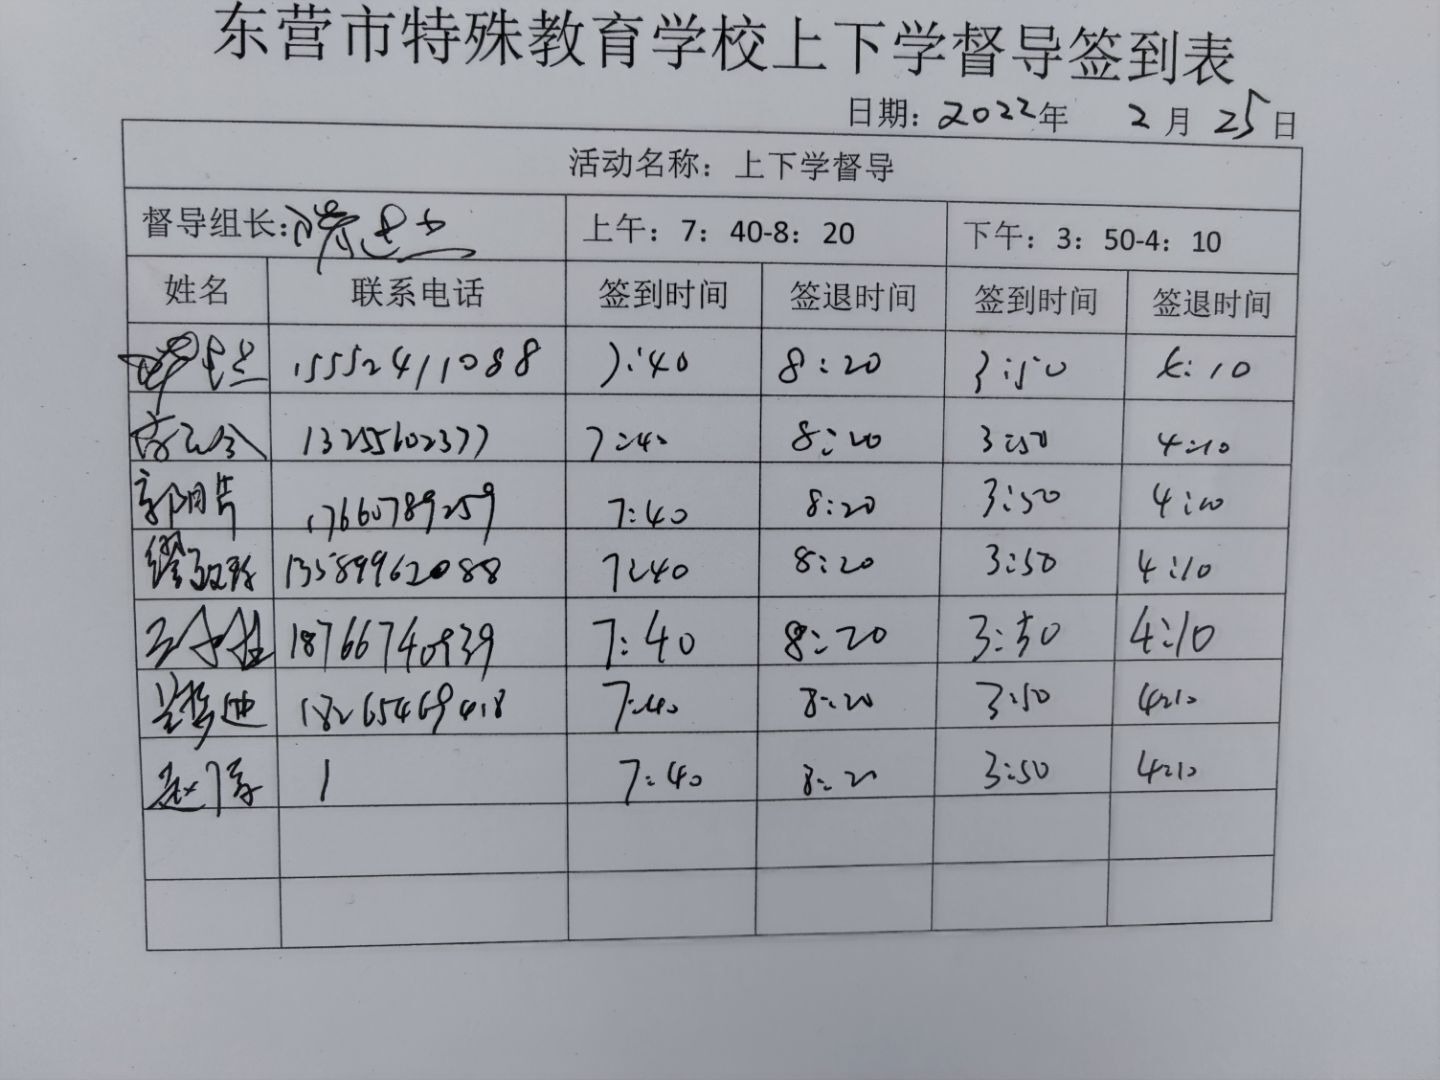 东营市特殊教育学校上下学督导签到表
日期：2022年 2月25日
活动名称：上下学督导
督导组长： 上午：7：40-8：20 下午：3：50-4：10
姓名 联系电话 签到时间 签退时间 签到时间 签退时间
15552411088 7:40 8:20 3:50 4:10
13255602377 7:40 8:20 3:50 4:10
郭月芹 17660789259 7:40 8:20 3:50 4:10
13589962088 7:40 8:20 3:50 4:10
18766740939 7:40 8:20 3:50 4:10
18265469418 7:40 8:20 3:50 4:10
1 7:40 8:20 3:50 4:10